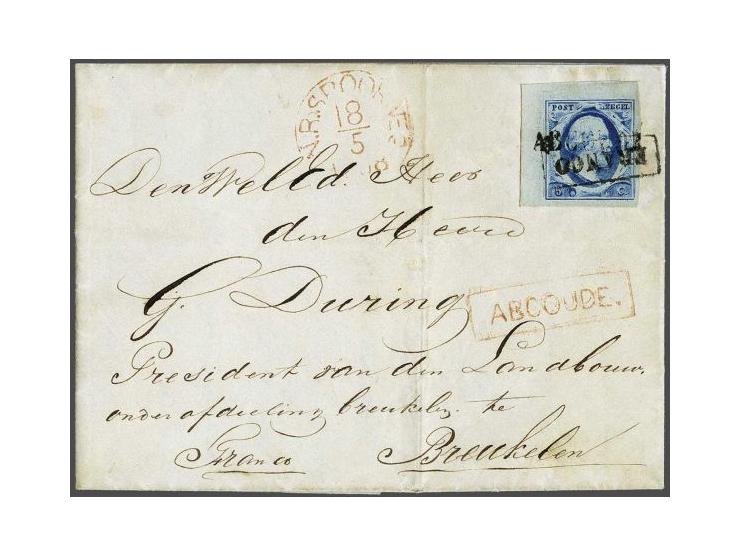 N.R.SPOORWEG
18
5
POST ZEGEL
ABCOUDE
FRANCO
5 C.
Den WelEd. Heer
den Heere
G. During
ABCOUDE.
President van den Landbouw,
onder afdeeling breukelen te
Franco Breukelen